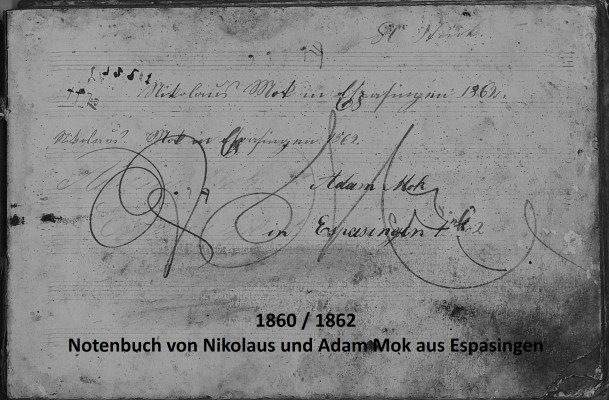 Nikolaus Mok in Espasingen 1862.
Nikolaus Mok in Espasingen 1862
Adam Mok
in Espasingen
1860 / 1862
Notenbuch von Nikolaus und Adam Mok aus Espasingen